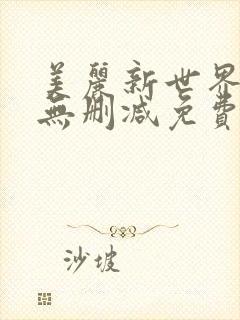 美麗新世界
無刪減免費
沙坡